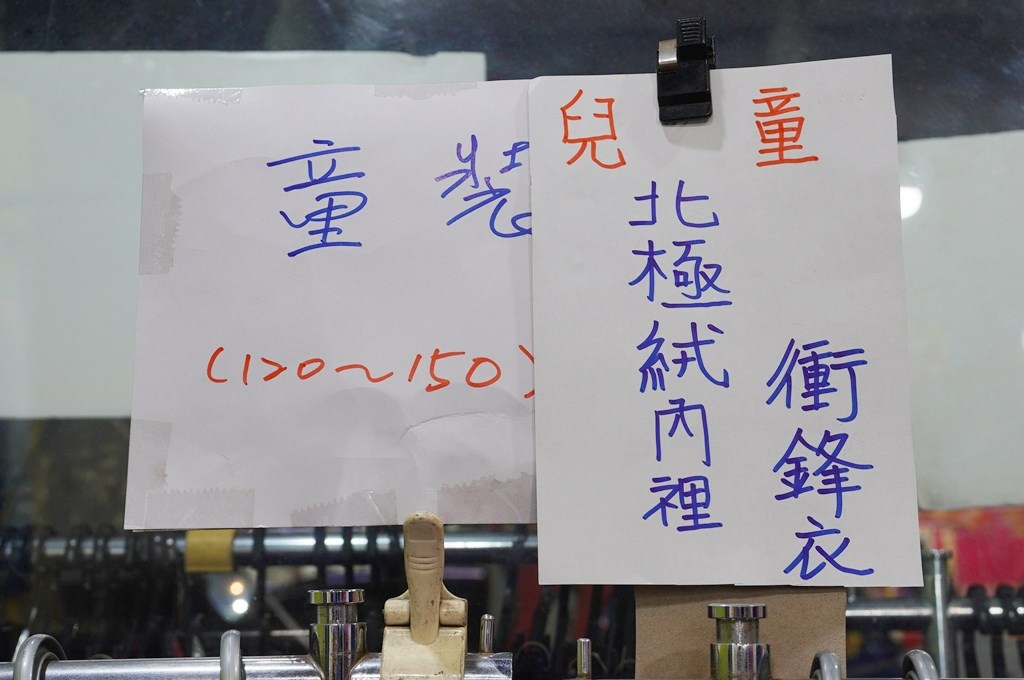 童裝
(120～150)
兒童
北極絨內裡
衝鋒衣